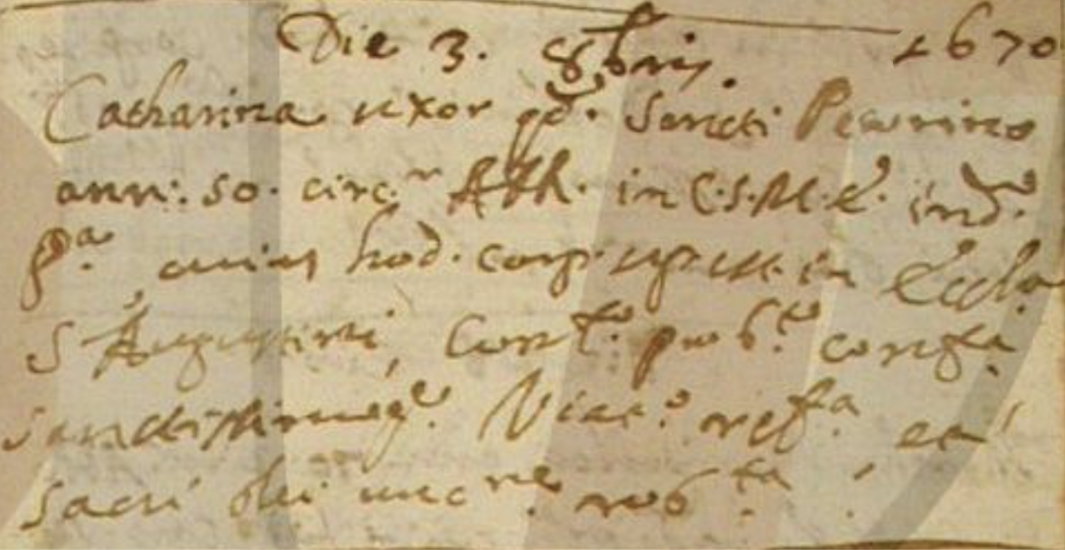 Die 3. 8bris. 1670
Catharina uxor qd. Sancti
ann: 50. circ. in C.S.M.E. ind.
Pa. cuius hod. corp. sep. est in Eccla
S Augustini, Curt. prob.to confa.
sanctissimoq. Viac.o refta et
sacri olei unc.ne rob.ta